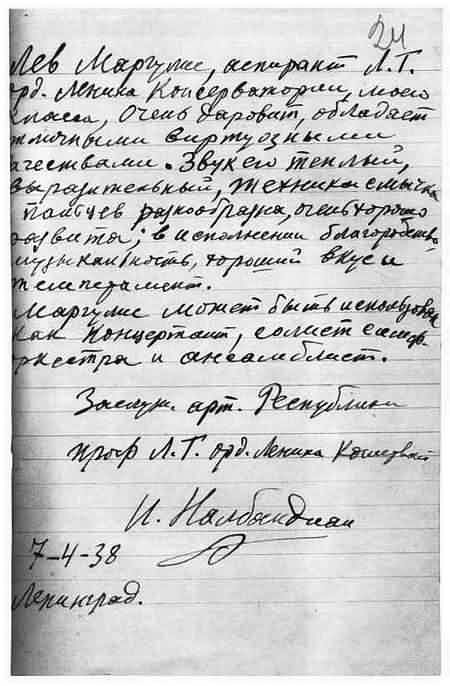 24
Лев Маргулис, аспирант Л.Г.
орд. Ленина Консерватории, моего
класса, очень даровит, обладает
отличными виртуозными
качествами. Звук его теплый,
выразительный, техника смычка
и пальцев разнообразна, очень хорошо
развита; в исполнении благородство,
музыкальность, хороший вкус и
темперамент.
Маргулис может быть использован
как концертант, солист симф.
оркестра и ансамблист.
Заслуж. арт. Республики
проф Л.Г. орд. Ленина Консерват
И. Налбандиан
7-4-38
Ленинград.